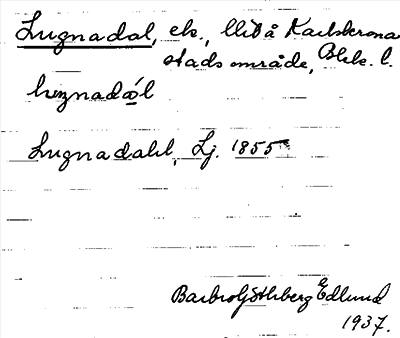 Lugnadal, ek., Llið å Karlskrona
stadsområde, Blek. l.
Lugnadahl, Lj. 1855
Barbro Göthberg Edlund
1937.